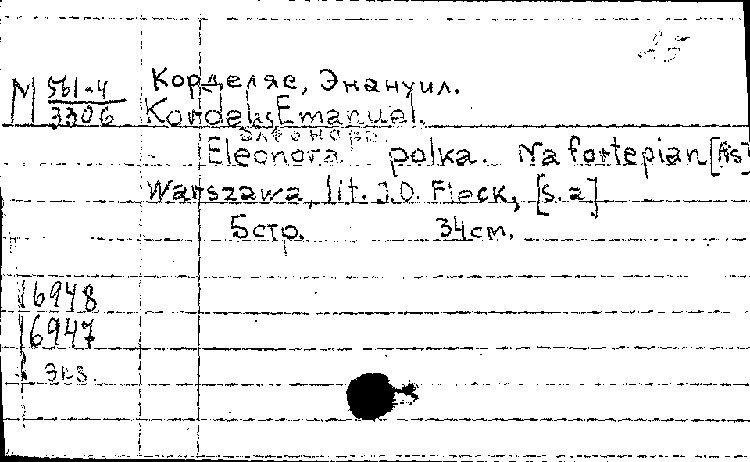 25
М 561-4
3306
Корделяс, Эмануил.
Kordelas Emanuel.
Элеонора
Eleonora polka. Na fortepian [Ms]
Warszawa, lit. J.O. Fleck, [s.a]
5стр. 34cm.
16948
16947
2 экз.